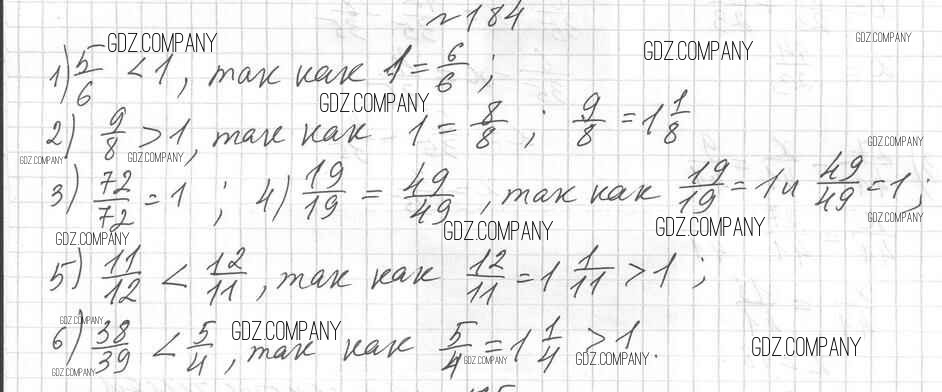 №184
GDZ.COMPANY
GDZ.COMPANY
GDZ.COMPANY
1) 5/6 < 1, так как 1 = 6/6;
GDZ.COMPANY
2) 9/8 > 1, так как 1 = 8/8; 9/8 = 1 1/8
GDZ.COMPANY
GDZ.COMPANY
GDZ.COMPANY
3) 72/72 = 1; 4) 19/19 = 49/49, так как 19/19 = 1 и 49/49 = 1;
GDZ.COMPANY
GDZ.COMPANY
GDZ.COMPANY
GDZ.COMPANY
5) 11/12 < 12/11, так как 12/11 = 1 1/11 > 1;
GDZ.COMPANY
GDZ.COMPANY
6) 38/39 < 5/4, так как 5/4 = 1 1/4 > 1.
GDZ.COMPANY
GDZ.COMPANY
GDZ.COMPANY
GDZ.COMPANY